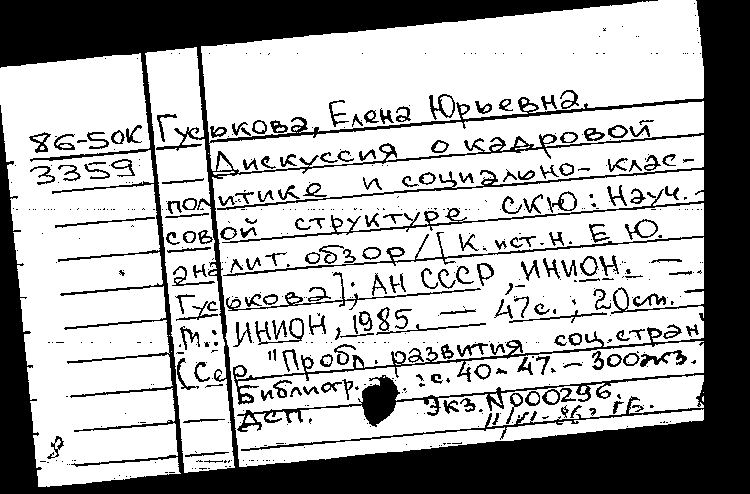 86-5ОК
3359
Гуськова, Елена Юрьевна.
Дискуссия о кадровой
политике и социально-клас-
совой структуре СКЮ: Науч.-
аналит. обзор/[К.ист.н. Е Ю.
Гуськова]; АН СССР, ИНИОН. —
М.: ИНИОН, 1985. — 47с.; 20см. —
(Сер. "Пробл. развития соц.стран"
Библиогр.: с. 40-47. — 300экз.
ДСП. Экз.N000296.